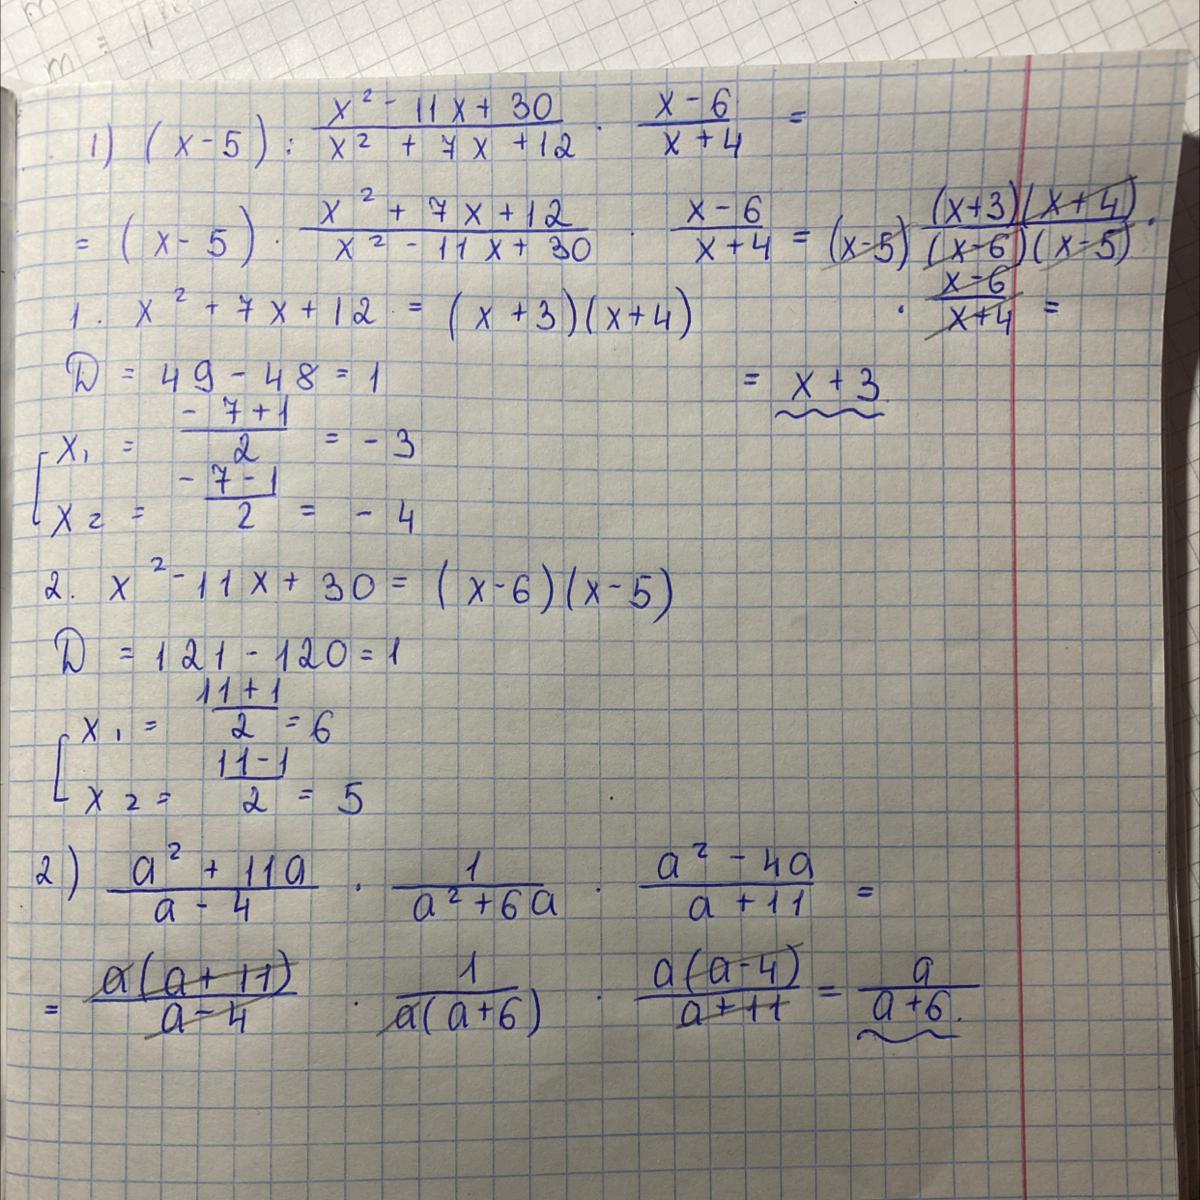 1) (x-5) : \frac{x² - 11x + 30}{x² + 7x + 12} · \frac{x-6}{x+4} =
= (x-5) · \frac{x² + 7x + 12}{x² - 11x + 30} · \frac{x-6}{x+4} = (x-5) \frac{(x+3)(x+4)}{(x-6)(x-5)} ·
· \frac{x-6}{x+4} =
= x + 3
1. x² + 7x + 12 = (x+3)(x+4)
D = 49 - 48 = 1
x₁ = \frac{-7+1}{2} = -3
x₂ = \frac{-7-1}{2} = -4
2. x² - 11x + 30 = (x-6)(x-5)
D = 121 - 120 = 1
x₁ = \frac{11+1}{2} = 6
x₂ = \frac{11-1}{2} = 5
2) \frac{a² + 11a}{a - 4} · \frac{1}{a² + 6a} · \frac{a² - 4a}{a + 11} =
= \frac{a(a+11)}{a-4} · \frac{1}{a(a+6)} · \frac{a(a-4)}{a+11} = \frac{a}{a+6}.